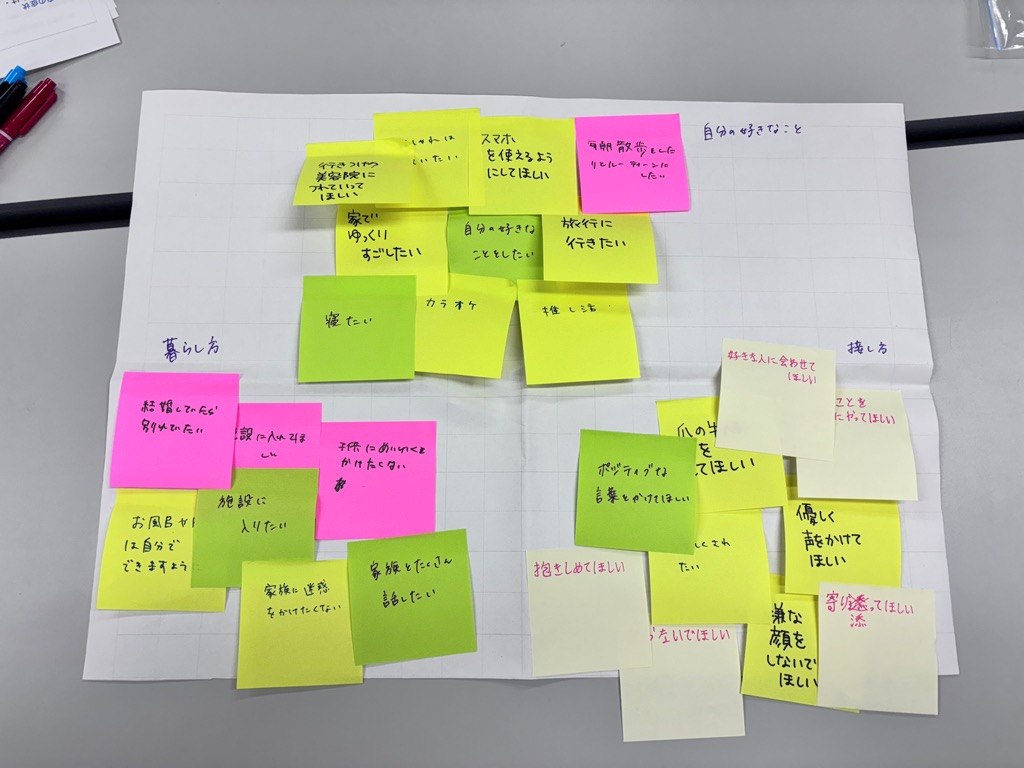 の症状
は.
自分の好きなこと
行きつけの
美容院に
つれていって
ほしい
しゃれは
いたい
スマホ
を使えるよう
にしてほしい
毎朝散歩をした
りとルーティーンに
したい
家で
ゆっくり
すごしたい
自分の好きな
ことをしたい
旅行に
行きたい
寝たい
カラオケ
推し活
暮らし方
結婚していたら
別れでたい
設に入れてほ
しい
子供にめいわくを
かけたくない
お風呂や
は自分で
できますよう
施設に
入りたい
家族に迷惑
をかけたくない
家族とたくさん
話したい
接し方
好きな人に会わせて
ほしい
ことを
にやってほしい
爪の
を
てほしい
ポジティブな
言葉をかけてほしい
しくされ
たい
優しく
声をかけて
ほしい
抱きしめてほしい
ないでほしい
嫌な
顔を
しないで
ほしい
寄り添ってほしい
添